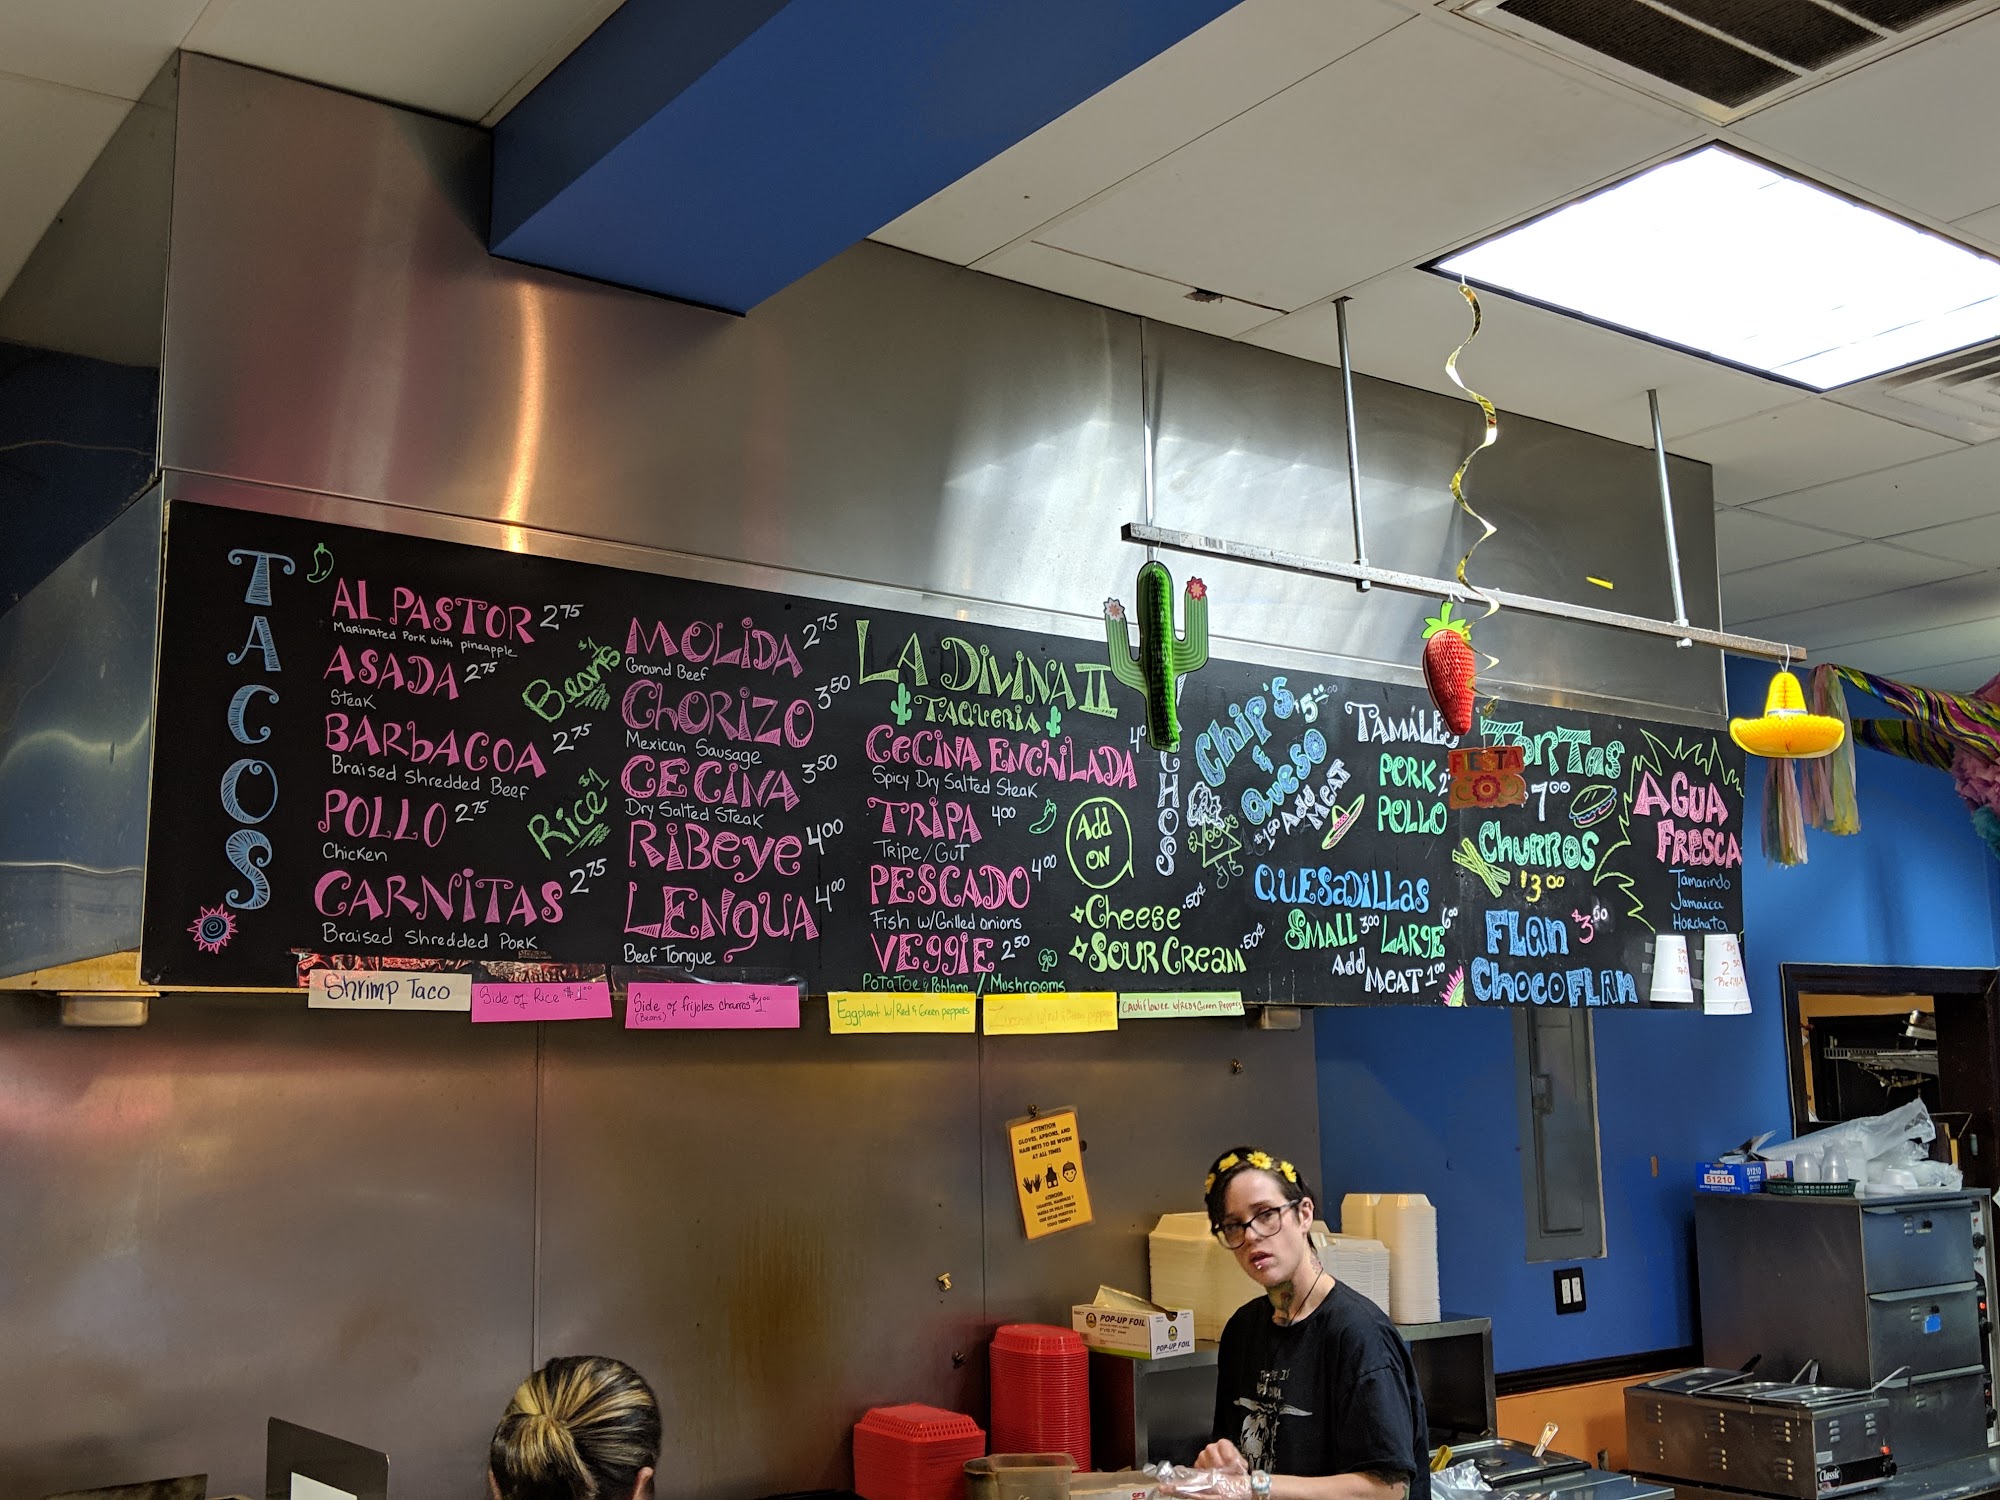 TACOS
AL PASTOR 2 75
Marinated Pork with pineapple
ASADA 2 75
Steak
BARBACOA 2 75
Braised Shredded Beef
POLLO 2 75
Chicken
CARNITAS 2 75
Braised Shredded Pork
Beans $1
Rice $1
MOLIDA 2 75
Ground Beef
CHORIZO 3 50
Mexican Sausage
CECINA 3 50
Dry Salted Steak
RIBEYE 4 00
LENGUA 4 00
Beef Tongue
LA DIVINA II
TAQUERIA
CECINA ENCHILADA
Spicy Dry Salted Steak
TRIPA 4 00
Tripe/Gut
PESCADO 4 00
Fish w/Grilled onions
VEGGIE 2 50
PoTaToe & Poblano / Mushrooms
Add
ON
Cheese .50¢
Sour Cream .50¢
Chip's $5 00
& Queso
$1 50 Add
MEAT
TAMALES
PORK
POLLO
QUESADILLAS
SMALL 3 00 LARGE 6 00
Add MEAT 1 00
TORTAS
$7 00
CHURROS
$3 00
FLAN $3 50
CHOCOFLAN
AGUA
FRESCA
Tamarindo
Jamaica
Horchata
FIESTA
Shrimp Taco
Side of Rice $1 00
Side of frijoles charros $1 00
(Beans)
Eggplant w/ Red & Green peppers
Cauliflower w/Red & Green Peppers
ATTENTION
GLOVES, APRONS, AND
HAIR NETS TO BE WORN
AT ALL TIMES
ATENCIÓN
POP-UP FOIL
POP-UP FOIL
51210
51210
Classic